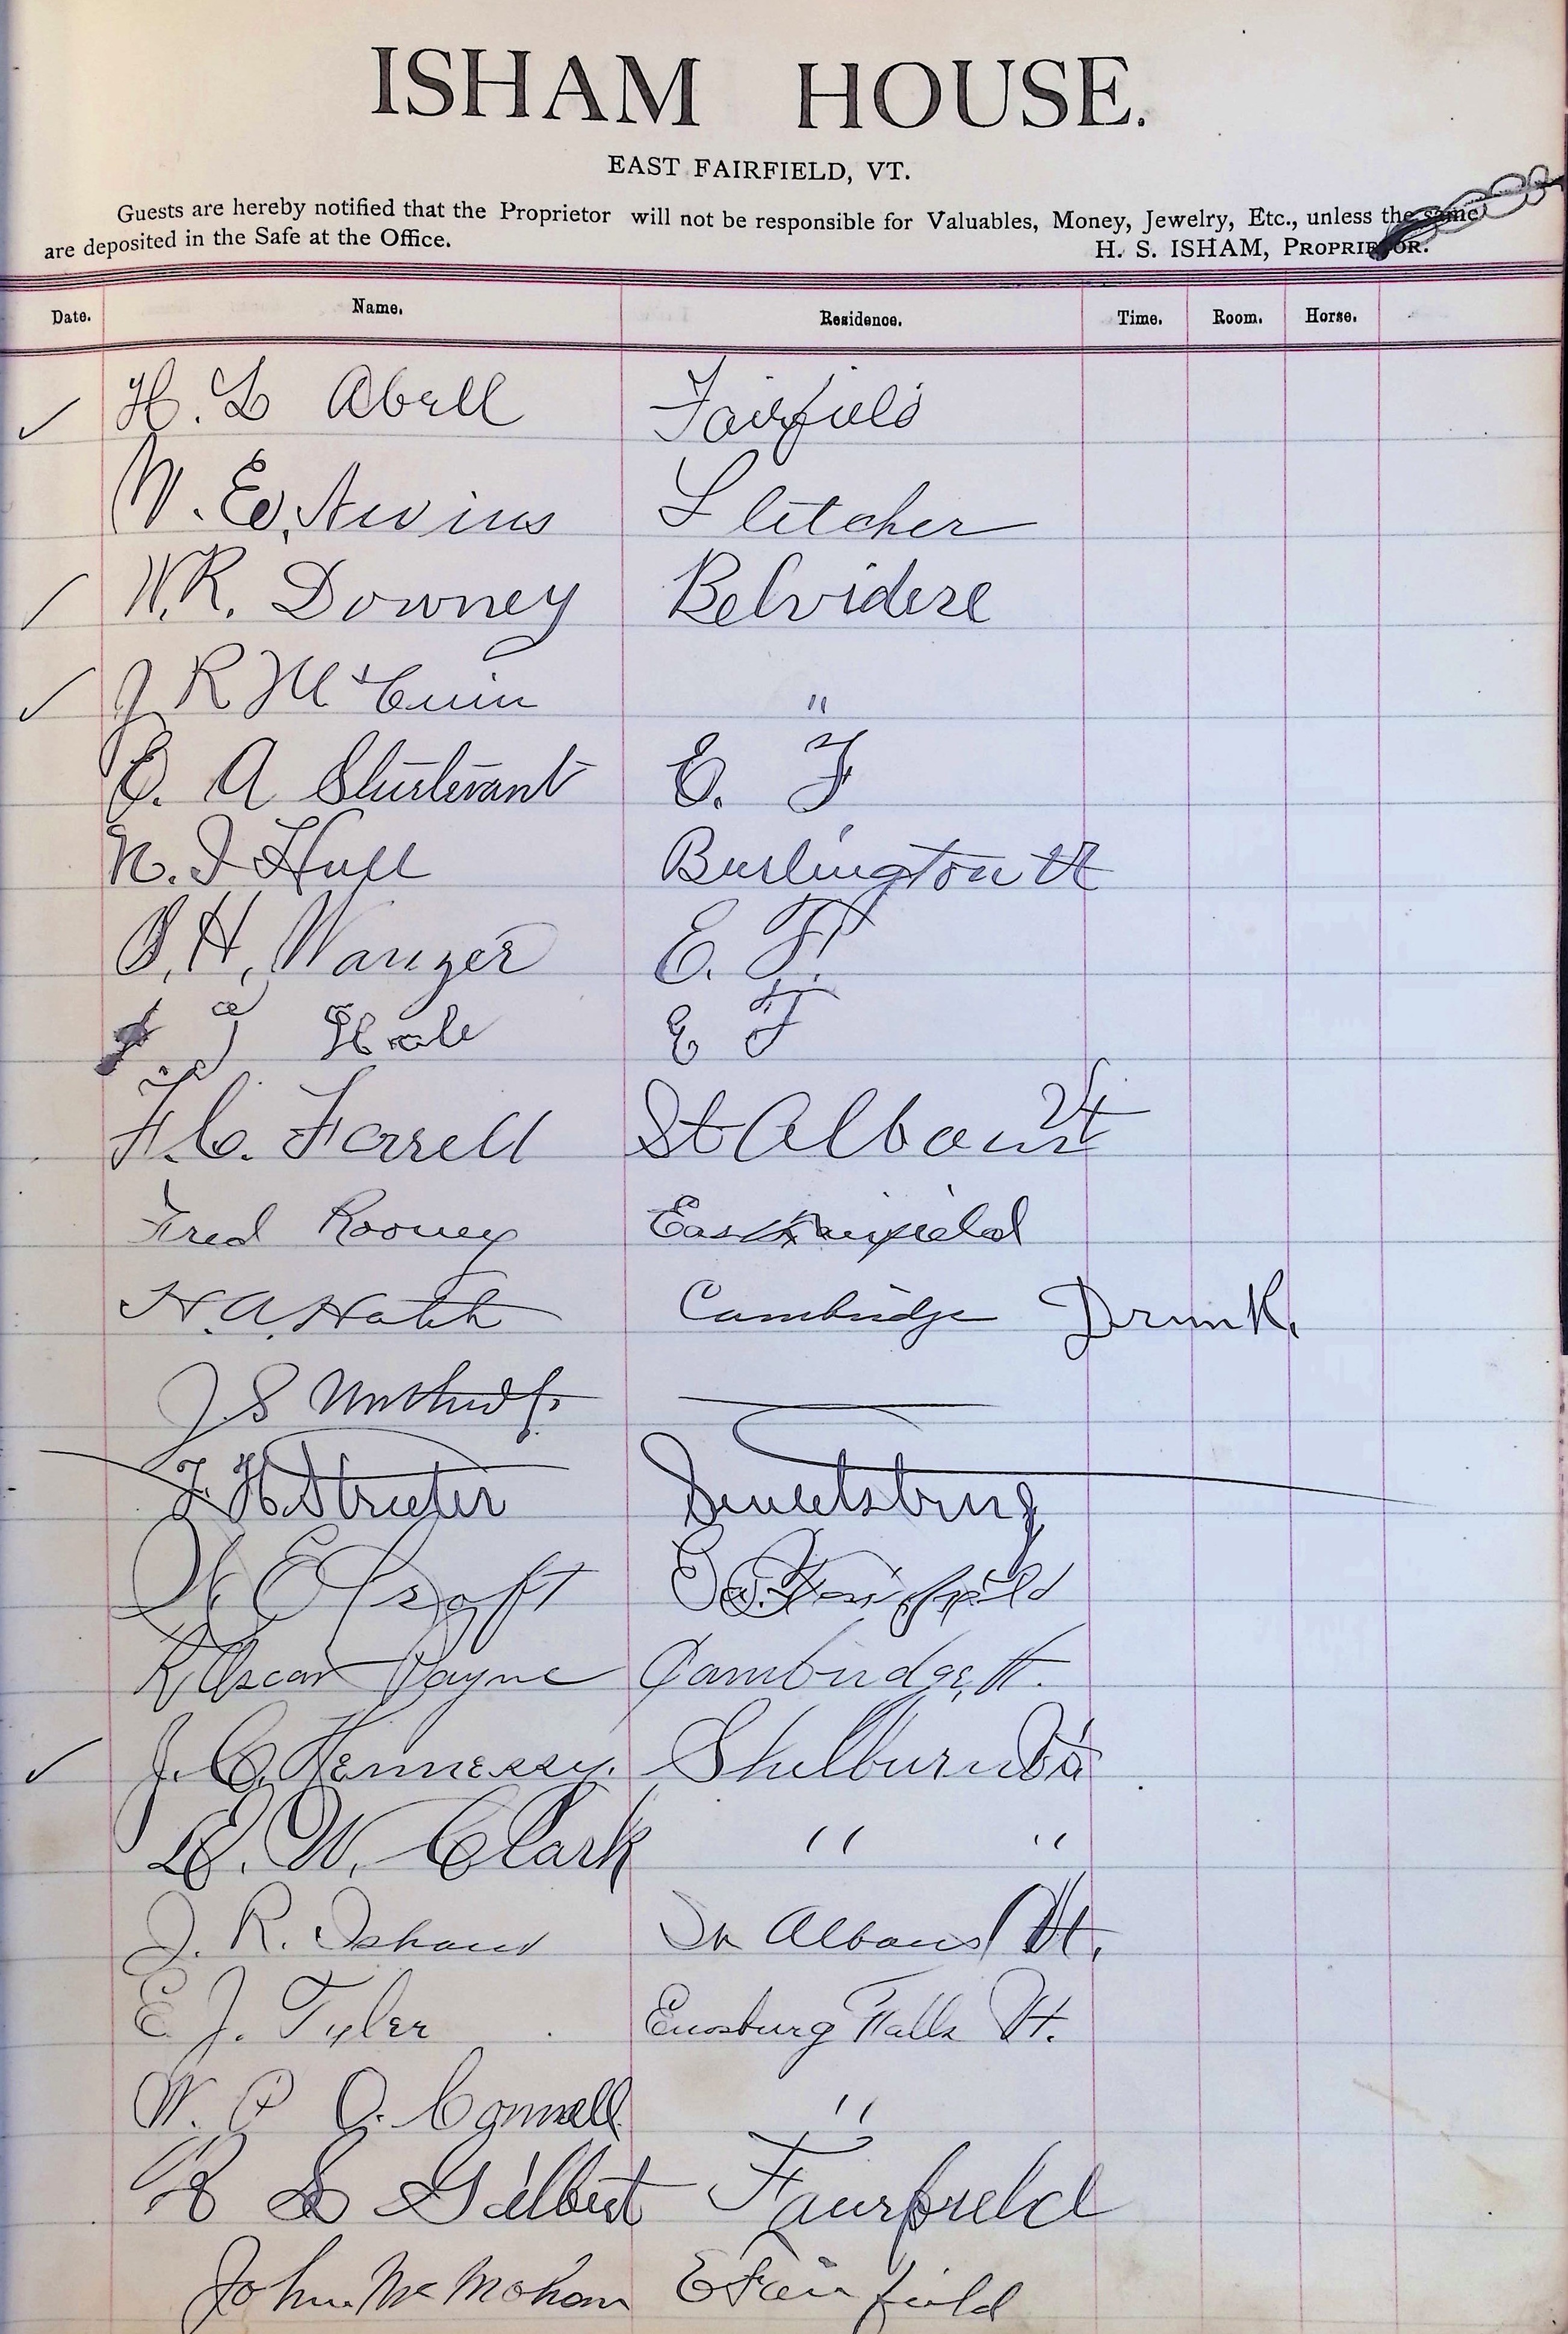 ISHAM HOUSE.
EAST FAIRFIELD, VT.
Guests are hereby notified that the Proprietor will not be responsible for Valuables, Money, Jewelry, Etc., unless the same
are deposited in the Safe at the Office.
H. S. ISHAM, PROPRIETOR.
Date. Name. Residence. Time. Room. Horse.
✓ H. L Abell Fairfield
W. E. Fletcher
✓ W.R. Downey Belvidere
✓ J R McCuin "
E. A Sturtevant E. F
N. J Hull Burlington Vt
O. H. Wanzer E. F.
J Hale E F
F. C. Farrell St Albans Vt
Fred Rooney East Fairfield
H. A. Hatch Cambridge Drunk.
J S
F. H. Streeter Sweetsburg
E Croft East Fairfield
R Oscar Payne Cambridge, Vt.
✓ J. C. Hennessy. Shelburn Vt
E. W. Clark " "
J. R. Isham St Albans Vt.
E. J. Tyler Enosburg Falls Vt.
W. P O. Connell "
R L Gilbert Fairfield
John McMahon E Fairfield